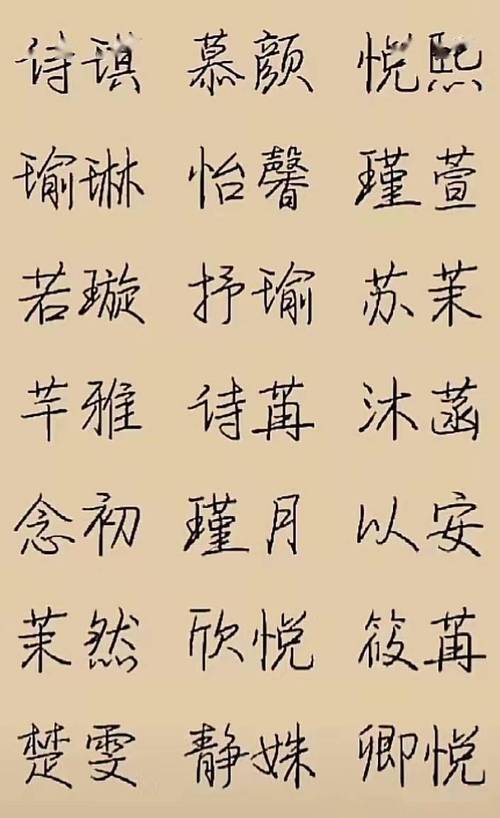 诗琪 慕颜 悦熙
瑜琳 怡馨 瑾萱
若璇 抒瑜 苏茉
芊雅 诗苒 沐菡
念初 瑾月 以安
茉然 欣悦 筱苒
楚雯 静姝 卿悦